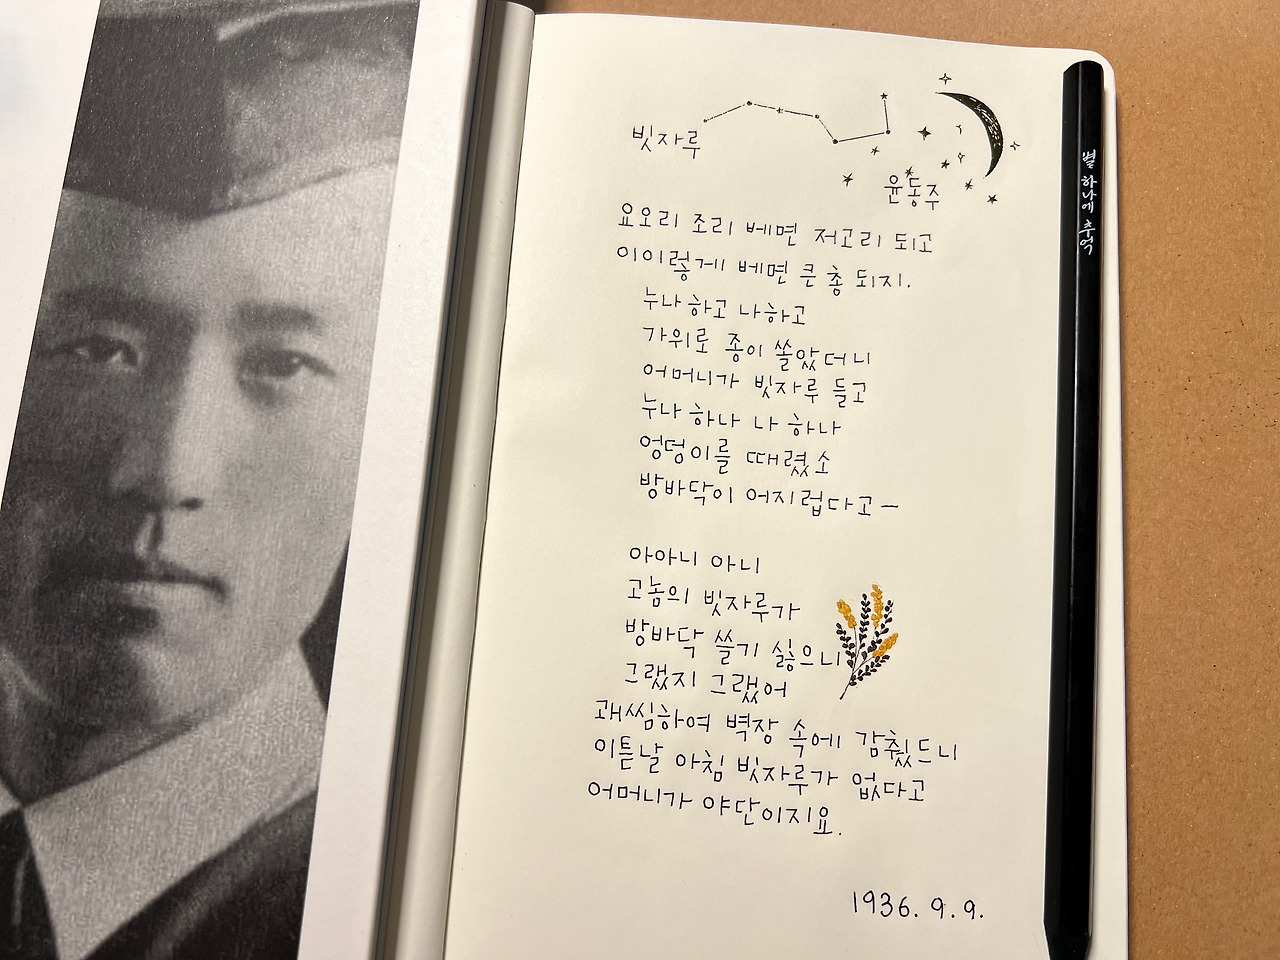 빗자루
윤동주
요오리 조리 베면 저고리 되고
이이렇게 베면 큰 총 되지.
누나 하고 나하고
가위로 종이 쏠았더니
어머니가 빗자루 들고
누나 하나 나 하나
엉덩이를 때렸소
방바닥이 어지럽다고 —
아아니 아니
고놈의 빗자루가
방바닥 쓸기 싫으니
그랬지 그랬어
괘씸하여 벽장 속에 감췄드니
이튿날 아침 빗자루가 없다고
어머니가 야단이지요.
1936. 9. 9.
별 하나에 추억